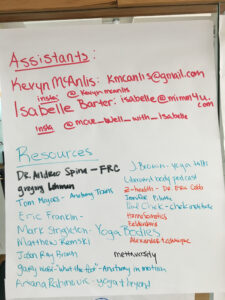 Assistants:
Kevyn McAnlis: kmcanlis@gmail.com
insta: @kevyn mcanlis
Isabelle Barter: isabelle@mimm4u.com
Insta @move_well_with_Isabelle
Resources
Dr. Andreo Spina - FRC
gregory Lehman
Tom Myers - Anatomy Trains
Eric Franklin -
Mark Singleton - Yoga Bodies
Matthew Remski
Julian Roy Branth
gary ward - "What the foot" - Anatomy in motion
Ariana Rabinovitch - yoga & beyond
J. Brown - yoga talks
Liberated body podcast
Z-health - Dr. Eric Cobb
Pilates
Paul Chek - chek institute
Hanna Somatics
Feldenkrais
Alexander technique
mettaversity